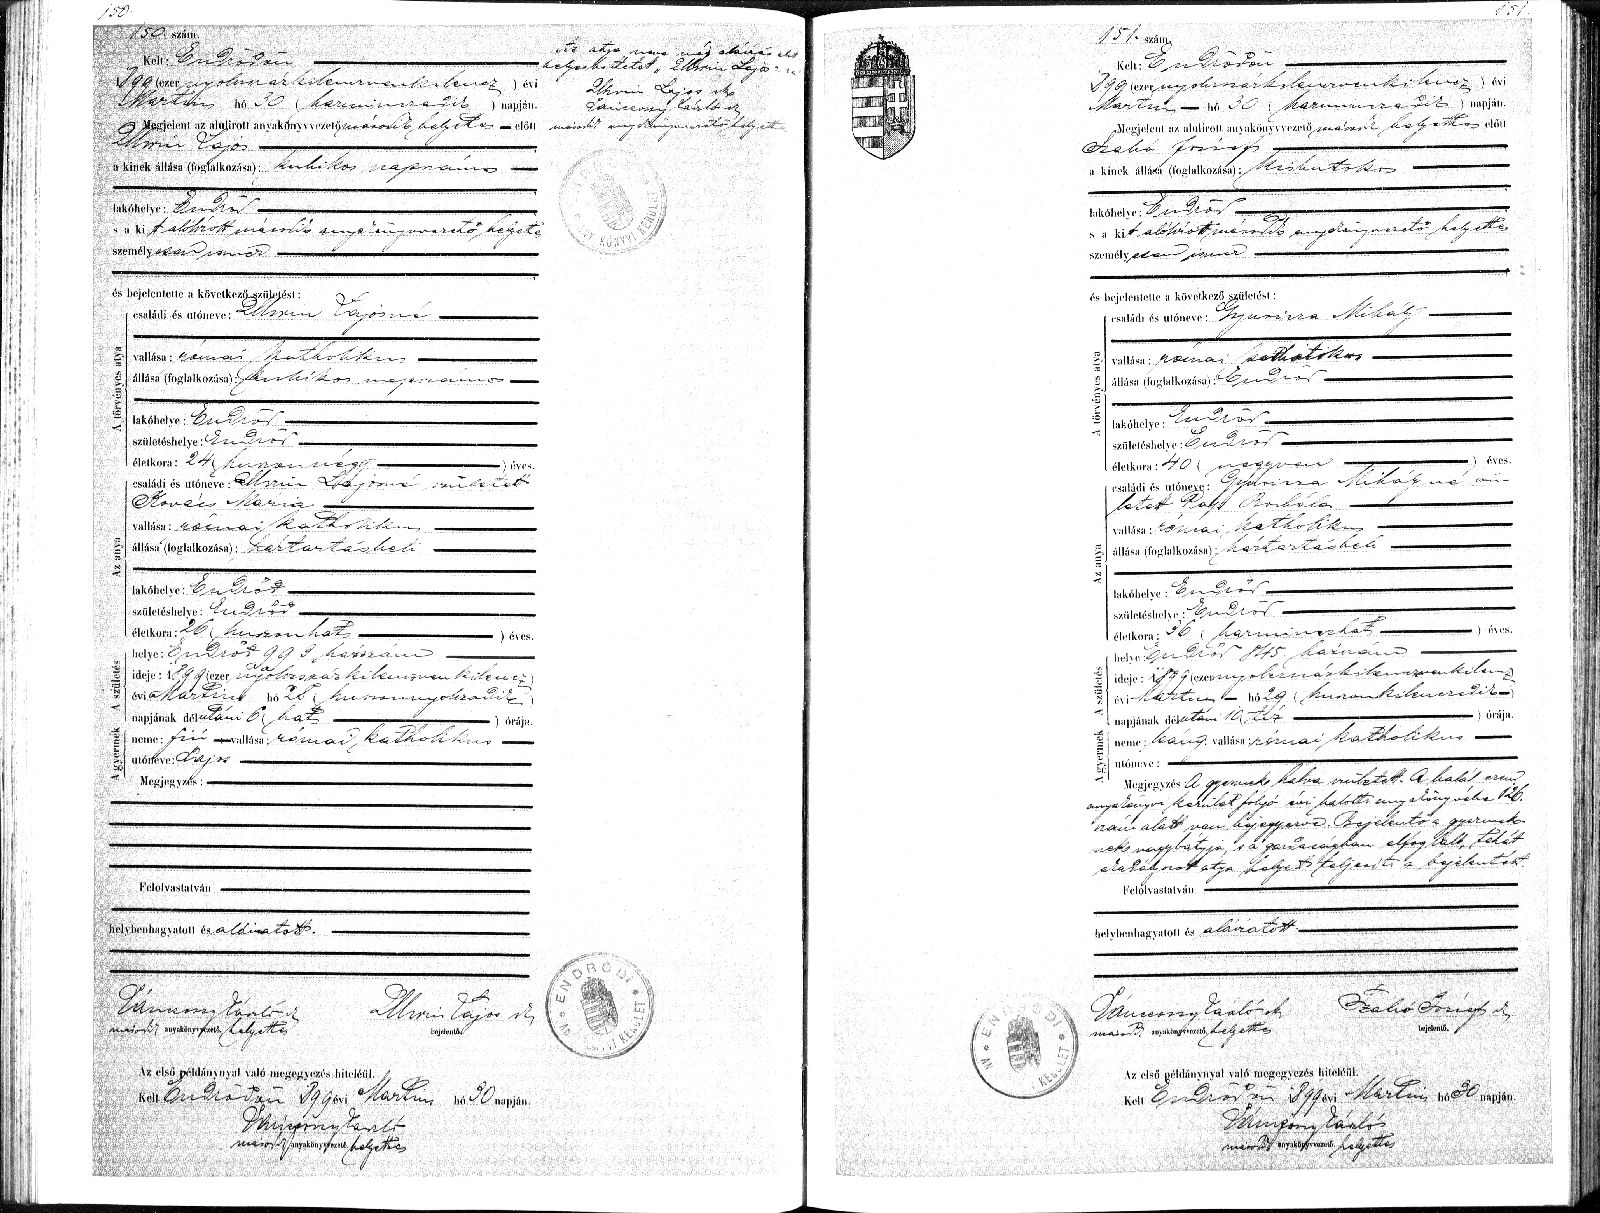 150.
150. szám.
Kelt: Endrődön
899 (ezer nyolczszázkilenczvenkilencz) évi
Martius hó 30 (harminczadik) napján.
Megjelent az alulirott anyakönyvvezető másodh helyettes előtt
Lajos
a kinek állása (foglalkozása): kubikos napszámos
lakóhelye: Endrőd
s a kit alólirott másodh anyakönyvvezető helyettes
személyesen ismer
és bejelentette a következő születést:
A törvényes atya
családi és utóneve: Lajosné
vallása: római katholikus
állása (foglalkozása): kubikos napszámos
lakóhelye: Endrőd
születéshelye: Endrőd
életkora: 24 (huszonnégy) éves.
Az anya
családi és utóneve: Lajosné született
Kovács Mária
vallása: római katholikus
állása (foglalkozása): háztartásbeli
lakóhelye: Endrőd
születéshelye: Endrőd
életkora: 26 (huszonhat) éves.
A születés
helye: Endrőd 993 házszám
ideje: 1899 (ezer nyolczszázkilenczvenkilencz)
évi Martius hó 28 (huszonnyolczadik)
napjának délutáni 6 (hat) órája.
A gyermek
neme: fiú vallása: római katholikus
utóneve: Lajos
Megjegyzés:
Felolvastatván
helybenhagyatott és aláiratott.
László
másodh anyakönyvvezető helyettes
Lajos
bejelentő.
Az első példánynyal való megegyezés hiteléül.
Kelt Endrődön 899 évi Martius hó 30 napján.
László
másodh anyakönyvvezető helyettes
Az atya neve még aláirás előtt
helyesbittetett Lajos ra
Lajos
László
másodh anyakönyvvezető helyettes
ENDRŐDI KERÜLET
151.
151. szám.
Kelt: Endrődön
899 (ezer nyolczszázkilenczvenkilencz) évi
Martius hó 30 (harminczadik) napján.
Megjelent az alulirott anyakönyvvezető másodh helyettes előtt
Szabó József
a kinek állása (foglalkozása): kisbirtokos
lakóhelye: Endrőd
s a kit alólirott másodh anyakönyvvezető helyettes
személyesen ismer
és bejelentette a következő születést:
A törvényes atya
családi és utóneve: Gyuricza Mihály
vallása: római katholikus
állása (foglalkozása): Endrőd
lakóhelye: Endrőd
születéshelye: Endrőd
életkora: 40 (negyven) éves.
Az anya
családi és utóneve: Gyuricza Mihályné szü-
letett Borbála
vallása: római katholikus
állása (foglalkozása): háztartásbeli
lakóhelye: Endrőd
születéshelye: Endrőd
életkora: 36 (harminczhat) éves.
A születés
helye: Endrőd 845 házszám
ideje: 1899 (ezer nyolczszázkilenczvenkilencz
évi Martius hó 29 (huszonkilenczedik)
napjának délután 10 tíz órája.
A gyermek
neme: leány vallása: római katholikus
utóneve:
Megjegyzés A gyermek halva született. A halál ezen
anyakönyvi kerület folyó évi halotti anyakönyvébe 126.
szám alatt van bejegyezve. Bejelentő a gyermek-
nek nagybátyja, s a gazdaságban elfoglalt, tehát
atya helyett teljesiti a bejelentést.
Felolvastatván
helybenhagyatott és aláiratott
László
másodh anyakönyvvezető helyettes
Szabó József
bejelentő.
ENDRŐDI KERÜLET
Az első példánynyal való megegyezés hiteléül.
Kelt Endrődön 1899 évi Martius hó 30 napján.
László
másodh anyakönyvvezető helyettes